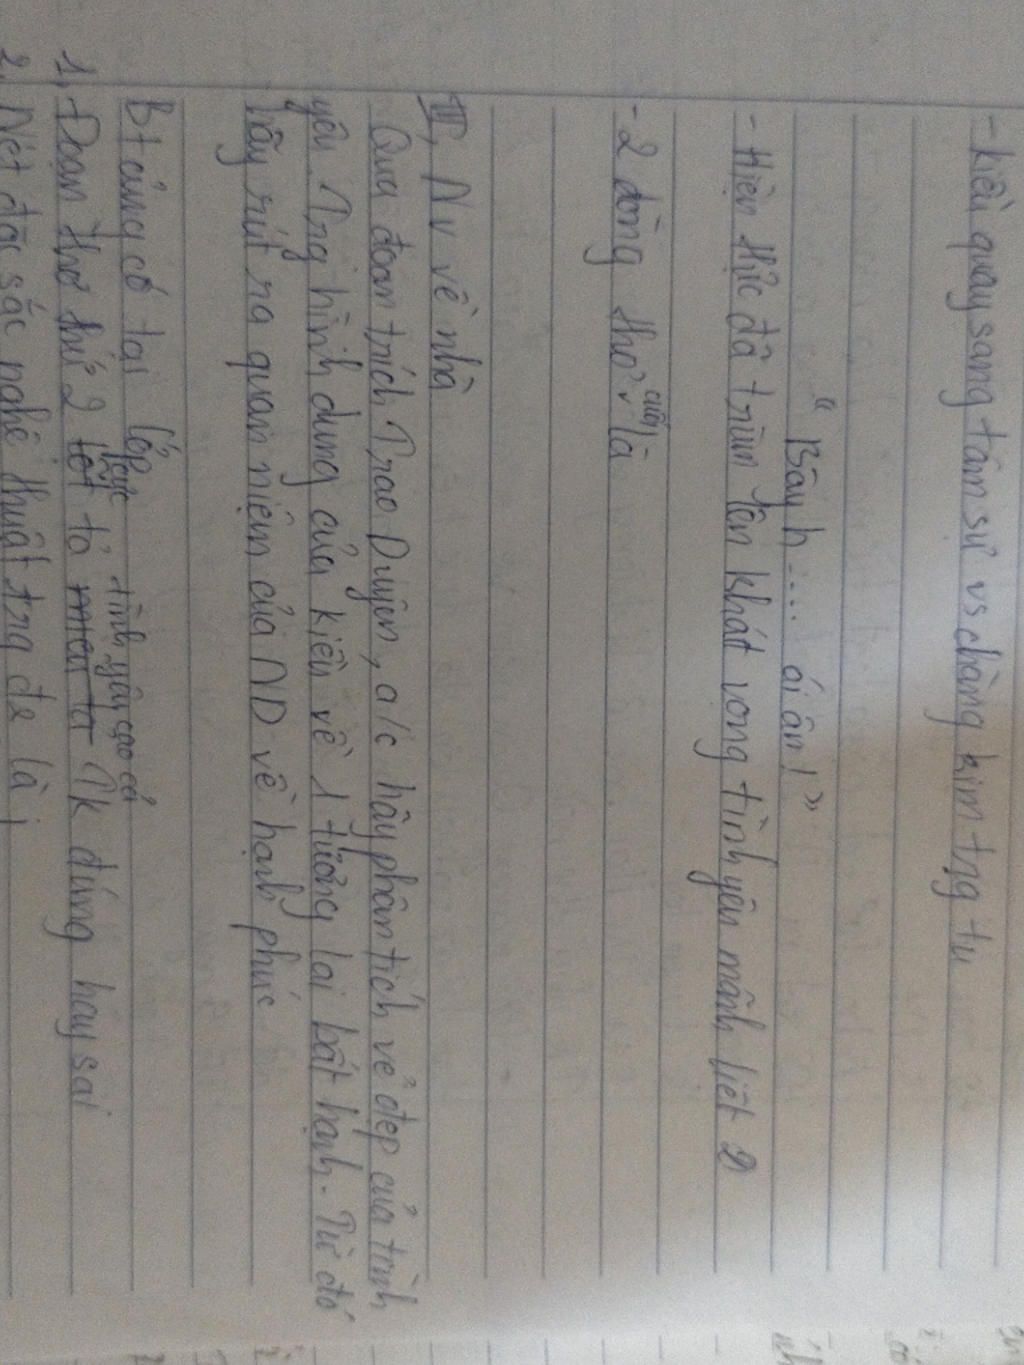 - Kiều quay sang tâm sự vs chàng kim trg tư
" Bây h.... ái ân! "
- Hiện thực đã trùm lên khát vọng tình yêu mãnh liệt
- 2 dòng thơ cuối là
III, Nv về nhà
Qua đoạn trích Trao Duyên, a/c hãy phân tích vẻ đẹp của tình
yêu. Trg hình dung của kiều về 1 tương lai bất hạnh. Từ đó
hãy rút ra quan niệm của ND về hạnh phúc
Bt củng cố tại lớp
1, Đoạn thơ thứ 2 tỏ tình yêu cao cả TK đúng hay sai
2, Nét đặc sắc nghệ thuật trg đz là;